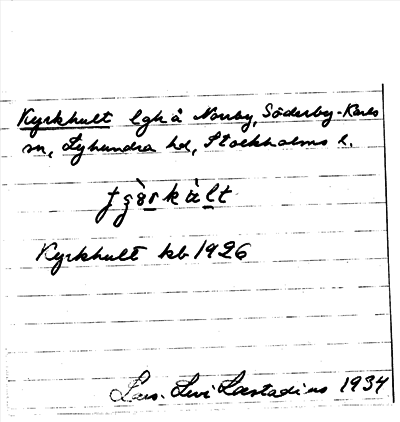 Kyrkhult lgh å Norrby, Söderby-Karls
sn, Lyhundra hd, Stockholms l.
Kyrkhult kb 1926
Lars-Levi Læstadius 1934